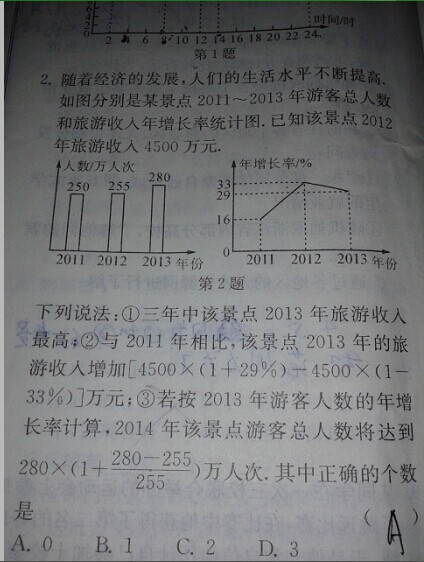 2 4 6 8 10 12 14 16 18 20 22 24 时间/时
第1题
2. 随着经济的发展,人们的生活水平不断提高.
如图分别是某景点 2011～2013 年游客总人数
和旅游收入年增长率统计图. 已知该景点 2012
年旅游收入 4500 万元.
人数/万人次
250 255 280
2011 2012 2013 年份
年增长率/%
33
29
16
0
2011 2012 2013 年份
第2题
下列说法:①三年中该景点 2013 年旅游收入
最高;②与 2011 年相比,该景点 2013 年的旅
游收入增加[4500×(1+29%)-4500×(1-
33%)]万元;③若按 2013 年游客人数的年增
长率计算,2014 年该景点游客总人数将达到
280×(1+\frac{280-255}{255})万人次. 其中正确的个数
是 ( A )
A. 0 B. 1 C. 2 D. 3